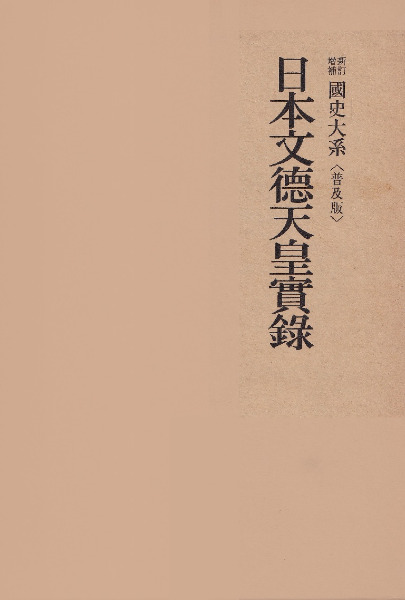 新訂
增補
國史大系〈普及版〉
日本文德天皇實錄